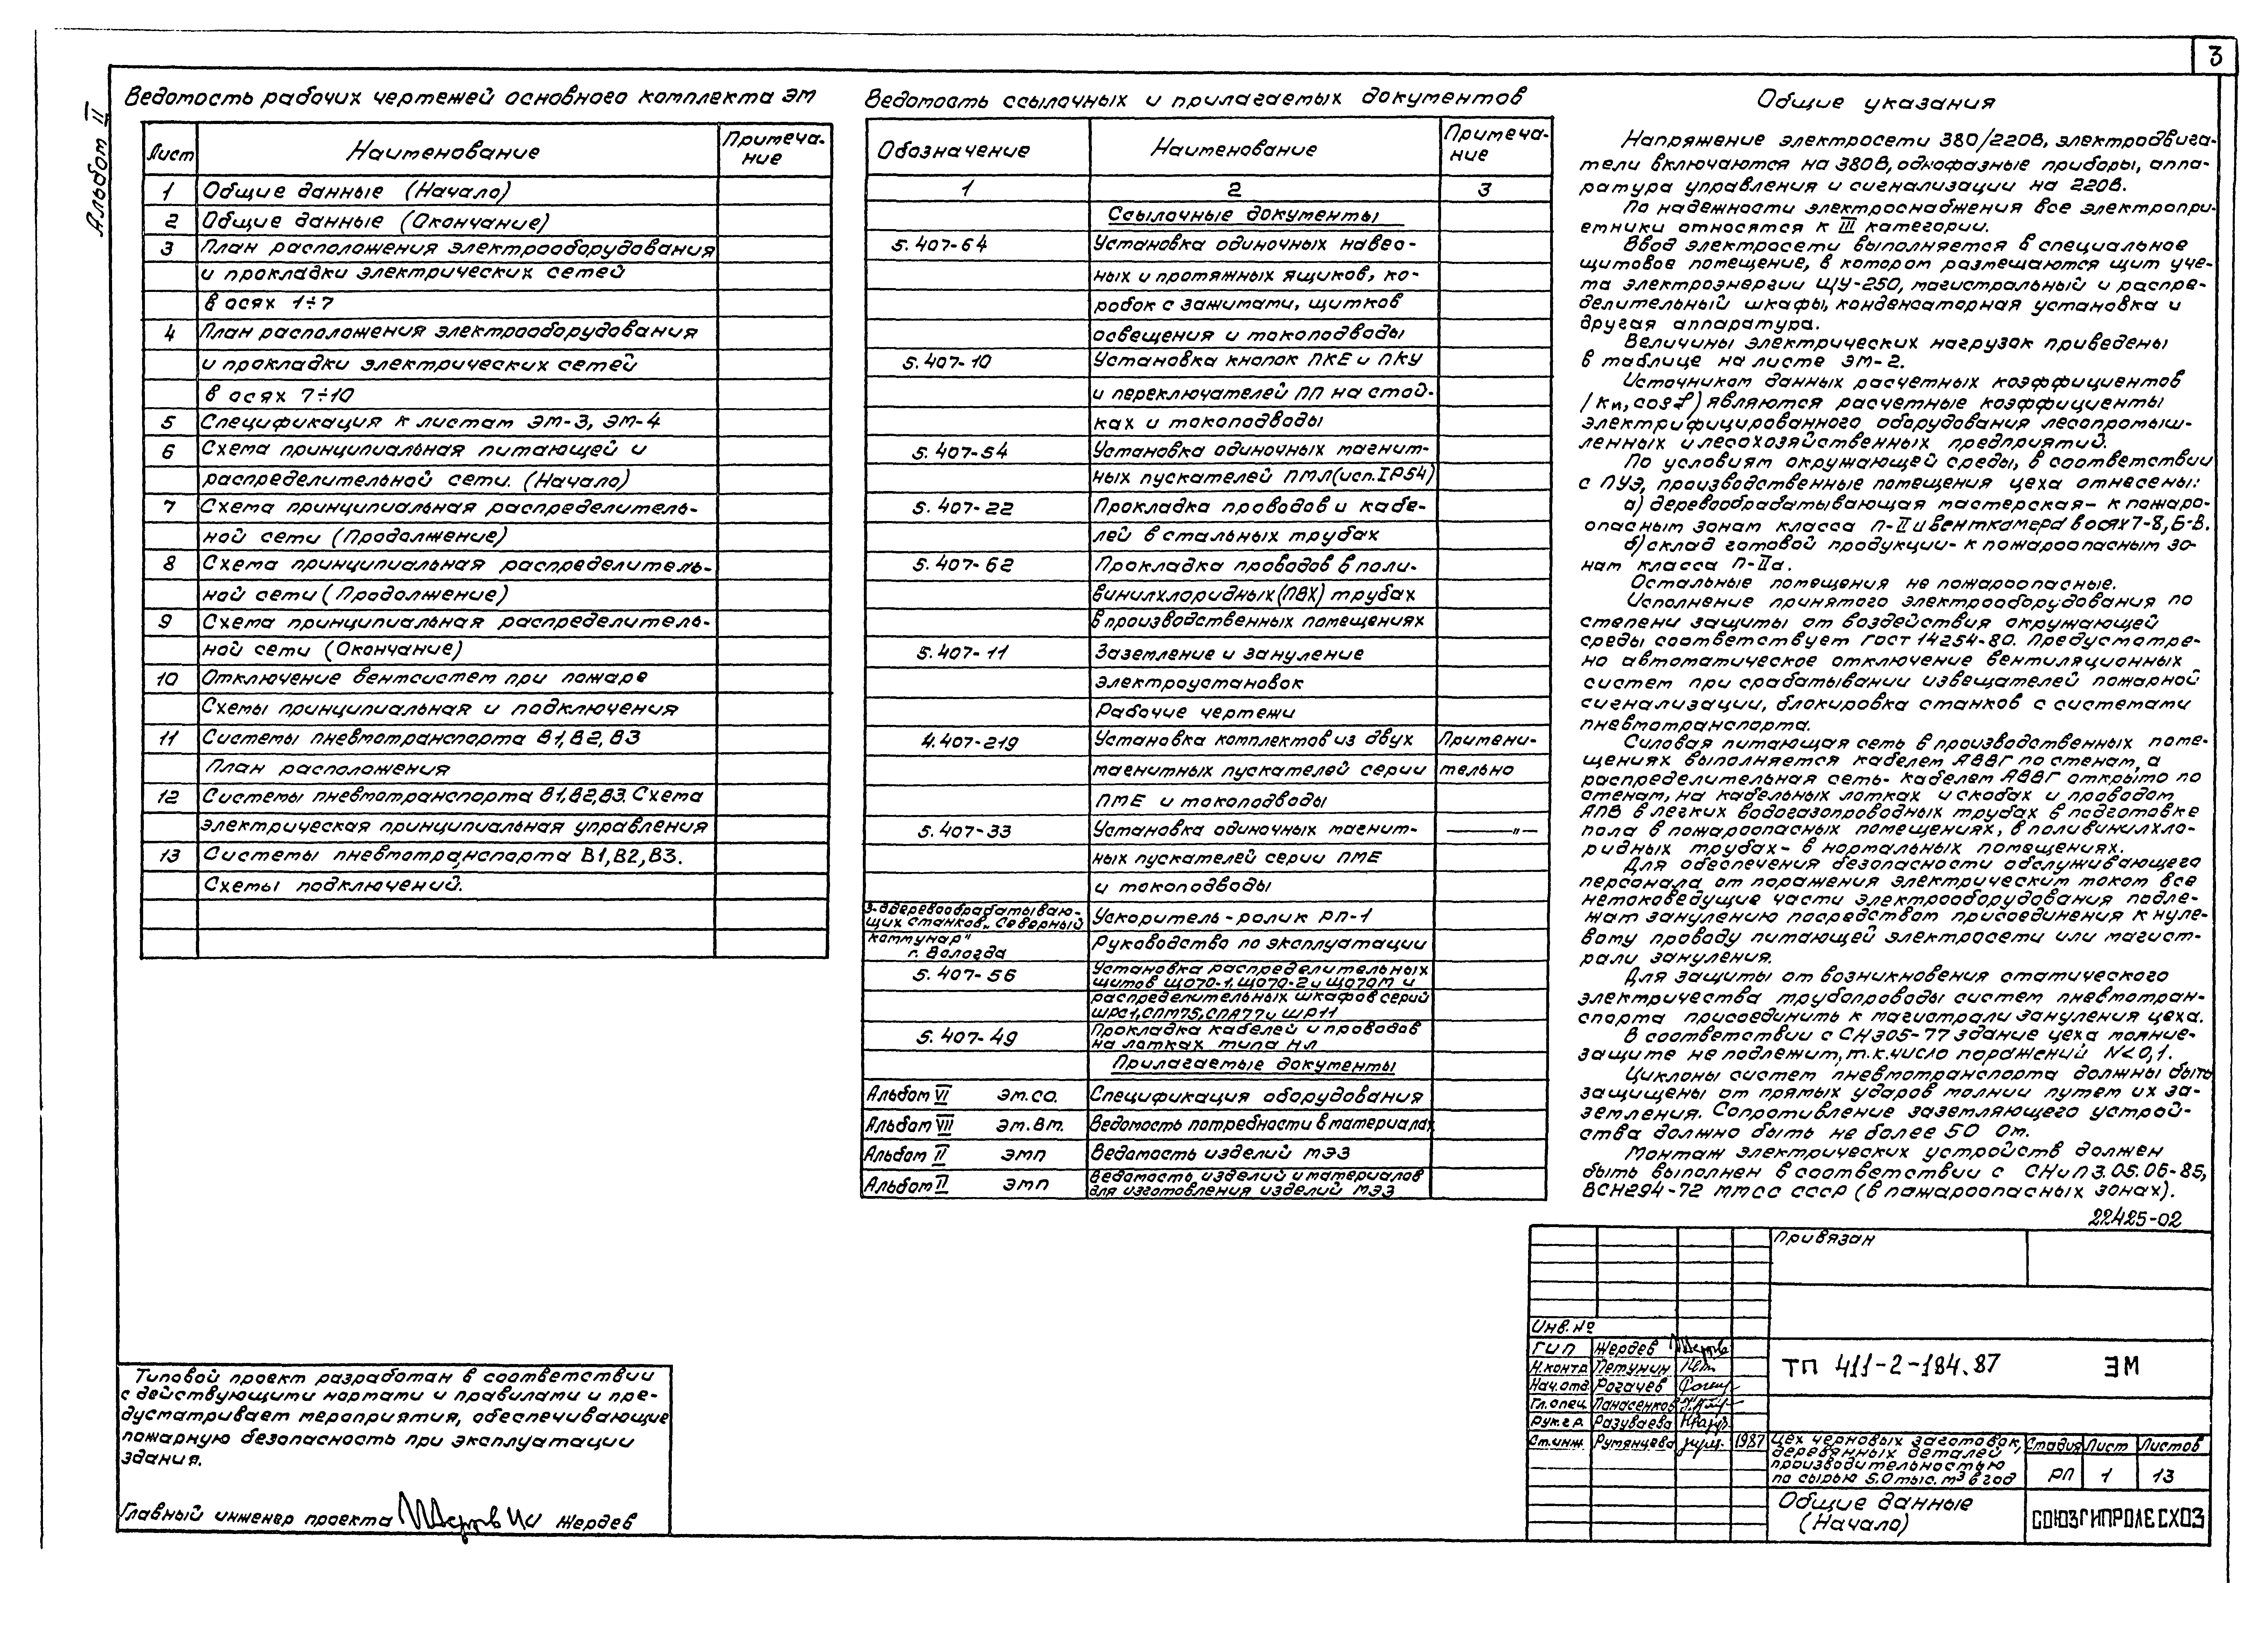 3
Альбом II
Ведомость рабочих чертежей основного комплекта ЭМ
Лист Наименование Примеча-
ние
1 Общие данные (Начало)
2 Общие данные (Окончание)
3 План расположения электрооборудования
и прокладки электрических сетей
в осях 1÷7
4 План расположения электрооборудования
и прокладки электрических сетей
в осях 7÷10
5 Спецификация к листам ЭМ-3, ЭМ-4
6 Схема принципиальная питающей и
распределительной сети. (Начало)
7 Схема принципиальная распределитель-
ной сети (Продолжение)
8 Схема принципиальная распределитель-
ной сети (Продолжение)
9 Схема принципиальная распределитель-
ной сети (Окончание)
10 Отключение вентсистем при пожаре
Схемы принципиальная и подключения
11 Системы пневмотранспорта В1, В2, В3
План расположения
12 Системы пневмотранспорта В1,В2,В3. Схема
электрическая принципиальная управления
13 Системы пневмотранспорта В1, В2, В3.
Схемы подключений.
Ведомость ссылочных и прилагаемых документов
Обозначение Наименование Примеча-
ние
1 2 3
Ссылочные документы
5.407-64 Установка одиночных навес-
ных и протяжных ящиков, ко-
робок с зажимами, щитков
освещения и токоподводы
5.407-10 Установка кнопок ПКЕ и ПКУ
и переключателей ПП на стой-
ках и токоподводы
5.407-54 Установка одиночных магнит-
ных пускателей ПМЛ(исп.IP54)
5.407-22 Прокладка проводов и кабе-
лей в стальных трубах
5.407-62 Прокладка проводов в поли-
винилхлоридных(ПВХ) трубах
в производственных помещениях
5.407-11 Заземление и зануление
электроустановок
Рабочие чертежи
4.407-219 Установка комплектов из двух Примени-
магнитных пускателей серии тельно
ПМЕ и токоподводы
5.407-33 Установка одиночных магнит- —"—
ных пускателей серии ПМЕ
и токоподводы
з-д деревообрабатываю-
щих станков „Северный
коммунар"
г. Вологда
Ускоритель-ролик РП-1
Руководство по эксплуатации
5.407-56 Установка распределительных
щитов ЩО70-1, ЩО70-2 и ЩО70М и
распределительных шкафов серий
ШРС1, СПМ75, СПА77 и ШР11
5.407-49 Прокладка кабелей и проводов
на лотках типа НЛ
Прилагаемые документы
Альбом VI ЭМ.СО. Спецификация оборудования
Альбом VII ЭМ.ВМ. Ведомость потребности в материалах
Альбом II ЭМП Ведомость изделий МЭЗ
Альбом II ЭМП Ведомость изделий и материалов
для изготовления изделий МЭЗ
Общие указания
Напряжение электросети 380/220В, электродвига-
тели включаются на 380В, однофазные приборы, аппа-
ратура управления и сигнализации на 220В.
По надежности электроснабжения все электропри-
емники относятся к III категории.
Ввод электросети выполняется в специальное
щитовое помещение, в котором размещаются щит уче-
та электроэнергии ЩУ-250, магистральный и распре-
делительный шкафы, конденсаторная установка и
другая аппаратура.
Величины электрических нагрузок приведены
в таблице на листе ЭМ-2.
Источником данных расчетных коэффициентов
/Кп, cos φ) являются расчетные коэффициенты
электрифицированного оборудования леспромыш-
ленных и лесохозяйственных предприятий.
По условиям окружающей среды, в соответствии
с ПУЭ, производственные помещения цеха отнесены:
а) деревообрабатывающая мастерская- к пожаро-
опасным зонам класса П-II и венткамера в осях 7-8, Б-В.
б) склад готовой продукции- к пожароопасным зо-
нам класса П-IIа.
Остальные помещения не пожароопасные.
Исполнение принятого электрооборудования по
степени защиты от воздействия окружающей
среды соответствует ГОСТ 14254-80. Предусмотре-
но автоматическое отключение вентиляционных
систем при срабатывании извещателей пожарной
сигнализации, блокировка станков с системами
пневмотранспорта.
Силовая питающая сеть в производственных поме-
щениях выполняется кабелем АВВГ по стенам, а
распределительная сеть- кабелем АВВГ открыто по
стенам, на кабельных лотках и скобах и проводом
АПВ в легких водогазопроводных трубах в подготовке
пола в пожароопасных помещениях, в поливинилхло-
ридных трубах- в нормальных помещениях.
Для обеспечения безопасности обслуживающего
персонала от поражения электрическим током все
нетоковедущие части электрооборудования подле-
жат занулению посредством присоединения к нуле-
вому проводу питающей электросети или магист-
рали зануления.
Для защиты от возникновения статического
электричества трубопроводы систем пневмотран-
спорта присоединить к магистрали зануления цеха.
В соответствии с СН305-77 здание цеха молние-
защите не подлежит, т.к. число поражений N<0,1.
Циклоны систем пневмотранспорта должны быть
защищены от прямых ударов молнии путем их за-
земления. Сопротивление заземляющего устрой-
ства должно быть не более 50 Ом.
Монтаж электрических устройств должен
быть выполнен в соответствии с СНиП 3.05.06-85,
ВСН294-72 ММСС СССР (в пожароопасных зонах).
22425-02
Привязан
Инв. №
ГИП Жердев
Н.контр. Петунин
Нач.отд. Рогачев
Гл.спец. Панасенков
Рук.гр. Разуваева
Ст.инж. Румянцева 1987
ТП 411-2-184.87 ЭМ
Цех черновых заготовок,
деревянных деталей
производительностью
по сырью 5.0 тыс. м³ в год
Стадия Лист Листов
РП 1 13
Общие данные
(Начало)
СОЮЗГИПРОЛЕСХОЗ
Типовой проект разработан в соответствии
с действующими нормами и правилами и пре-
дусматривает мероприятия, обеспечивающие
пожарную безопасность при эксплуатации
здания.
Главный инженер проекта Жердев